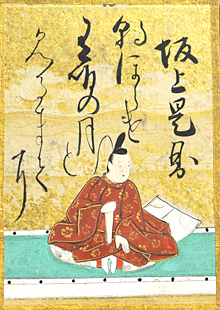 坂上是則
朝ほらけ
有明の月と
みるまて
に